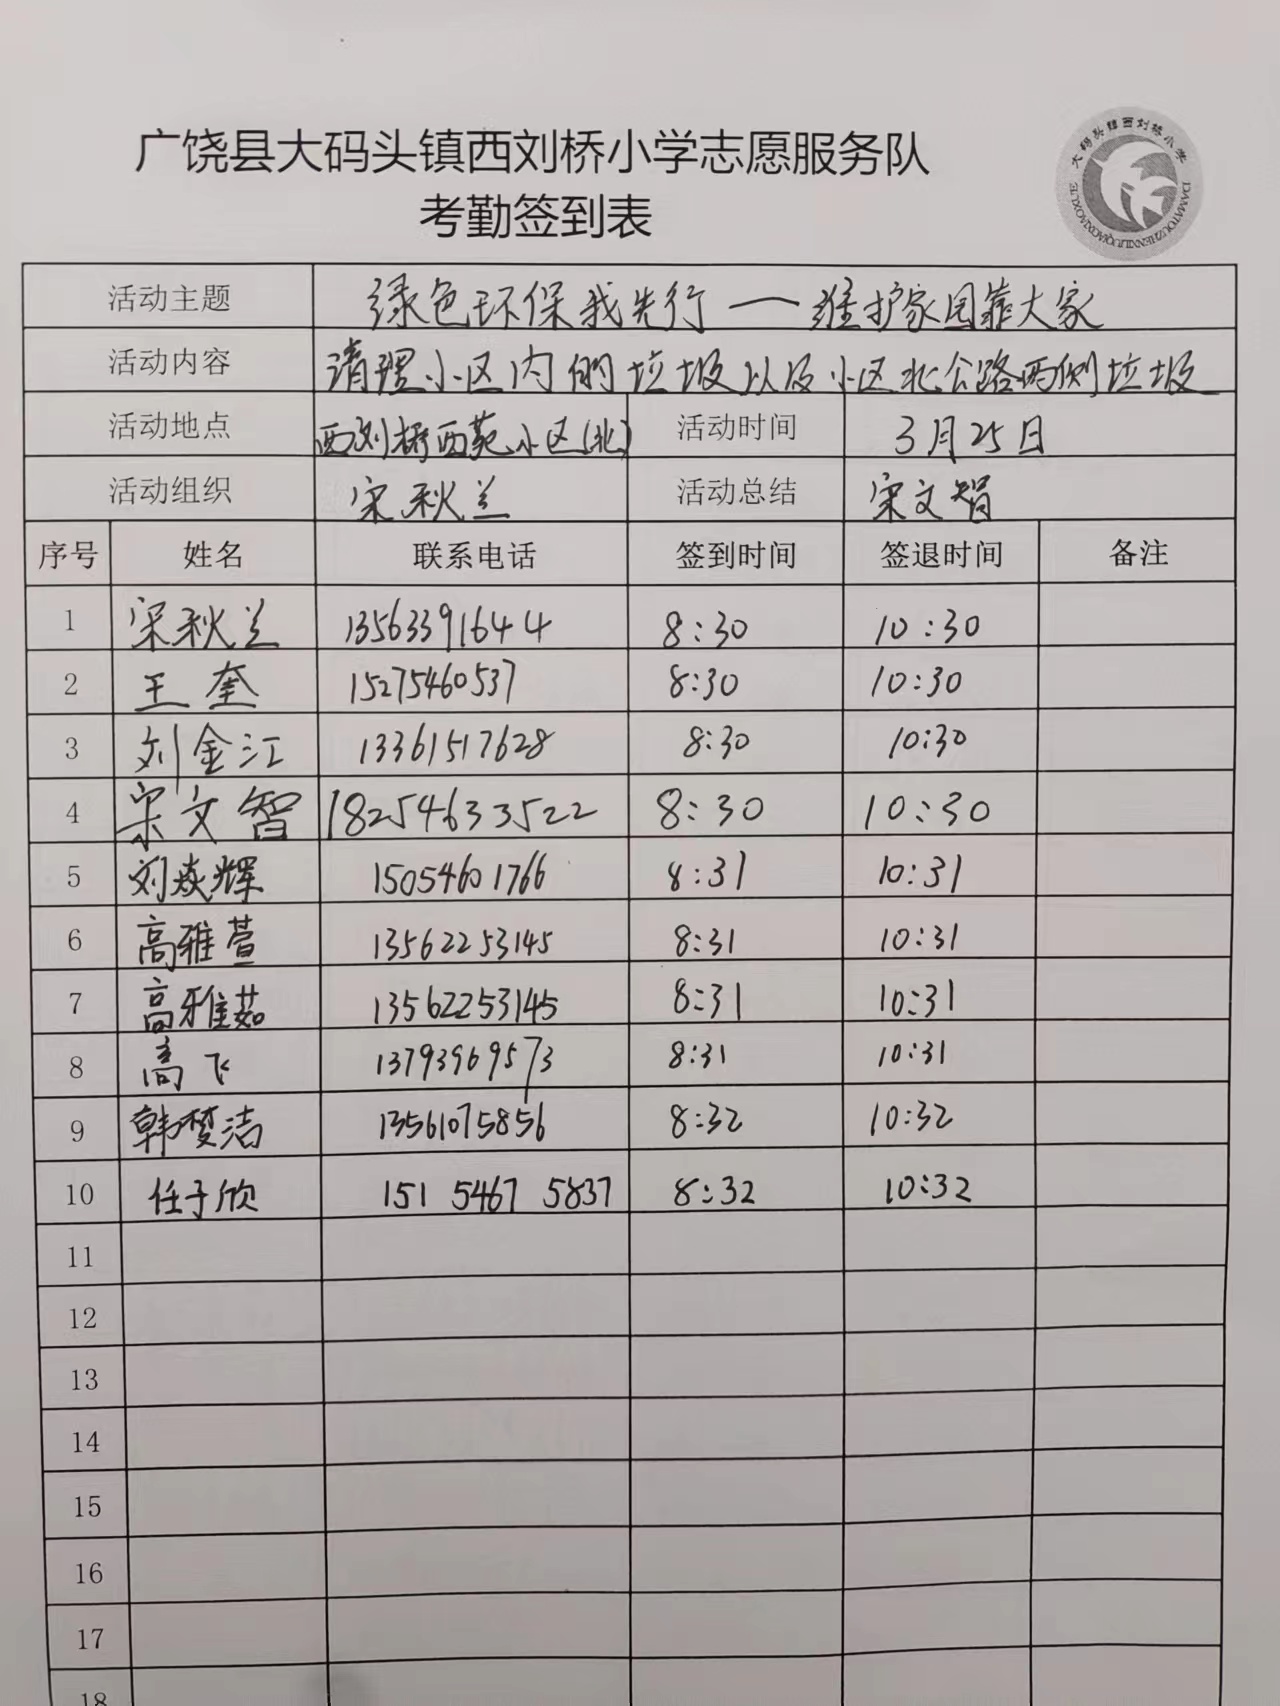 广饶县大码头镇西刘桥小学志愿服务队
考勤签到表
大码头镇西刘桥小学
DAMATOUZHENXILIUQIAOXIAOXUE
活动主题 绿色环保我先行——维护家园靠大家
活动内容 清理小区内的垃圾以及小区北公路两侧垃圾
活动地点 西刘桥西苑小区(北) 活动时间 3月25日
活动组织 宋秋兰 活动总结 宋文智
序号 姓名 联系电话 签到时间 签退时间 备注
1 宋秋兰 13563391644 8:30 10:30
2 王奎 15275460537 8:30 10:30
3 刘金江 13361517628 8:30 10:30
4 宋文智 18254633522 8:30 10:30
5 刘焱辉 15054601766 8:31 10:31
6 高雅萱 13562253145 8:31 10:31
7 高雅茹 13562253145 8:31 10:31
8 高飞 13793969573 8:31 10:31
9 韩梦洁 13561075856 8:32 10:32
10 任于欣 151 5467 5837 8:32 10:32
11
12
13
14
15
16
17
18